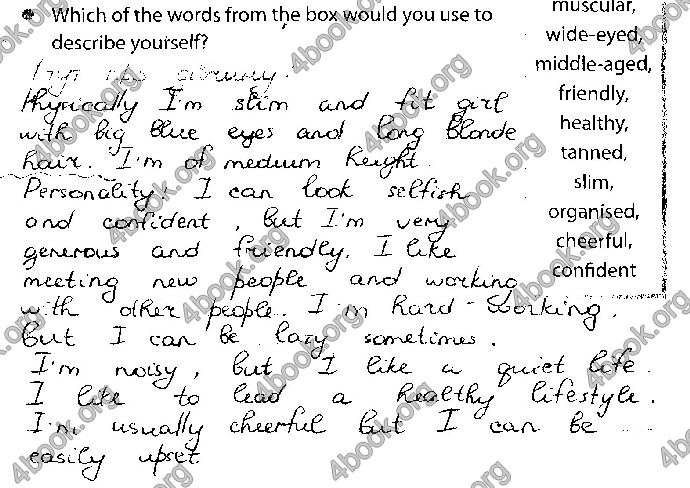 Which of the words from the box would you use to
describe yourself?
Physically I'm slim and fit girl
with big blue eyes and long blonde
hair. I'm of medium height.
Personality: I can look selfish
and confident, but I'm very
generous and friendly. I like
meeting new people and working
with other people. I'm hard-working,
but I can be lazy sometimes.
I'm noisy, but I like a quiet life.
I like to lead a healthy lifestyle.
I'm usually cheerful but I can be
easily upset.
muscular,
wide-eyed,
middle-aged,
friendly,
healthy,
tanned,
slim,
organised,
cheerful,
confident
4book.org